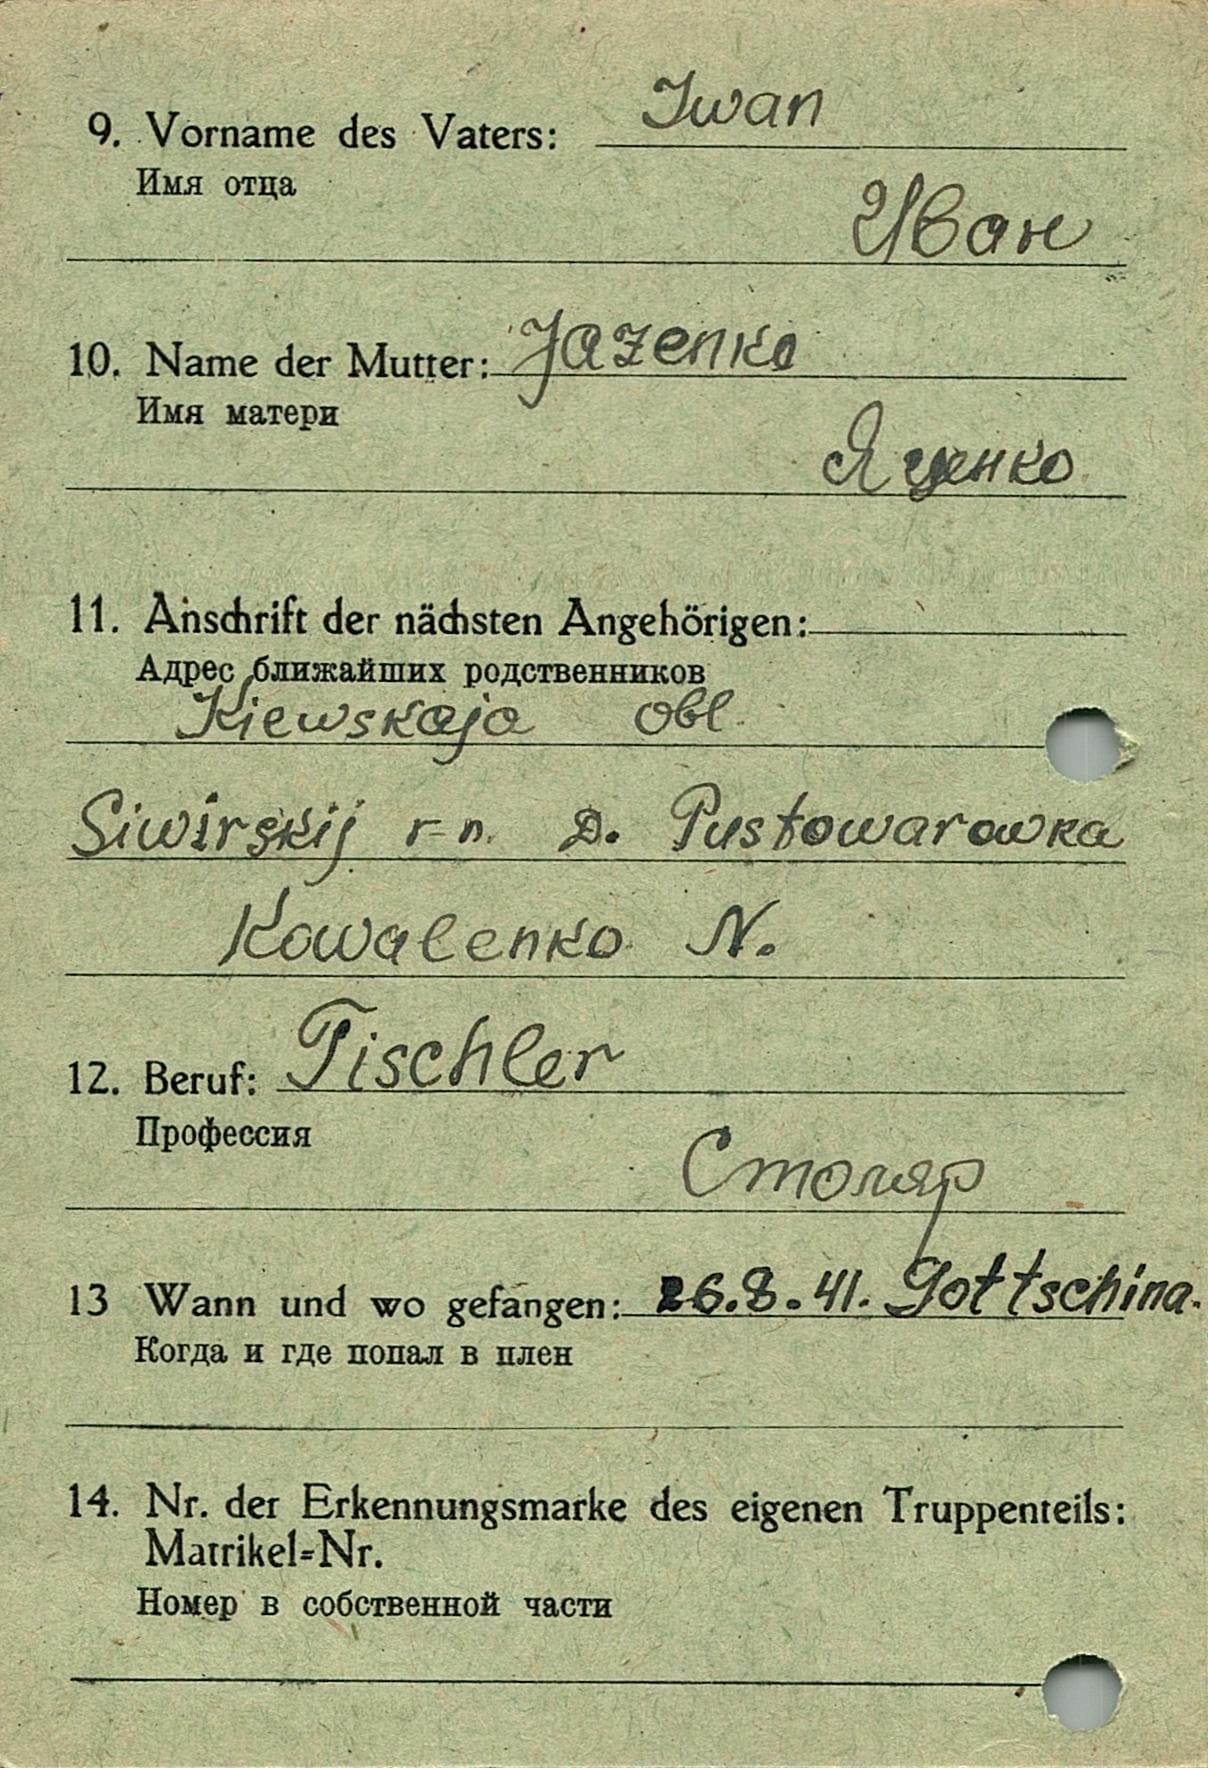 9. Vorname des Vaters: Iwan
Имя отца
Иван
10. Name der Mutter: Jazenko
Имя матери
Яценко
11. Anschrift der nächsten Angehörigen:
Адрес ближайших родственников
Kiewskaja obl
Siwirskij r-n. D. Pustowarowka
Kowalenko N.
12. Beruf: Tischler
Профессия
Столяр
13 Wann und wo gefangen: 26.8.41. Gottschina.
Когда и где попал в плен
14. Nr. der Erkennungsmarke des eigenen Truppenteils:
Matrikel=Nr.
Номер в собственной части